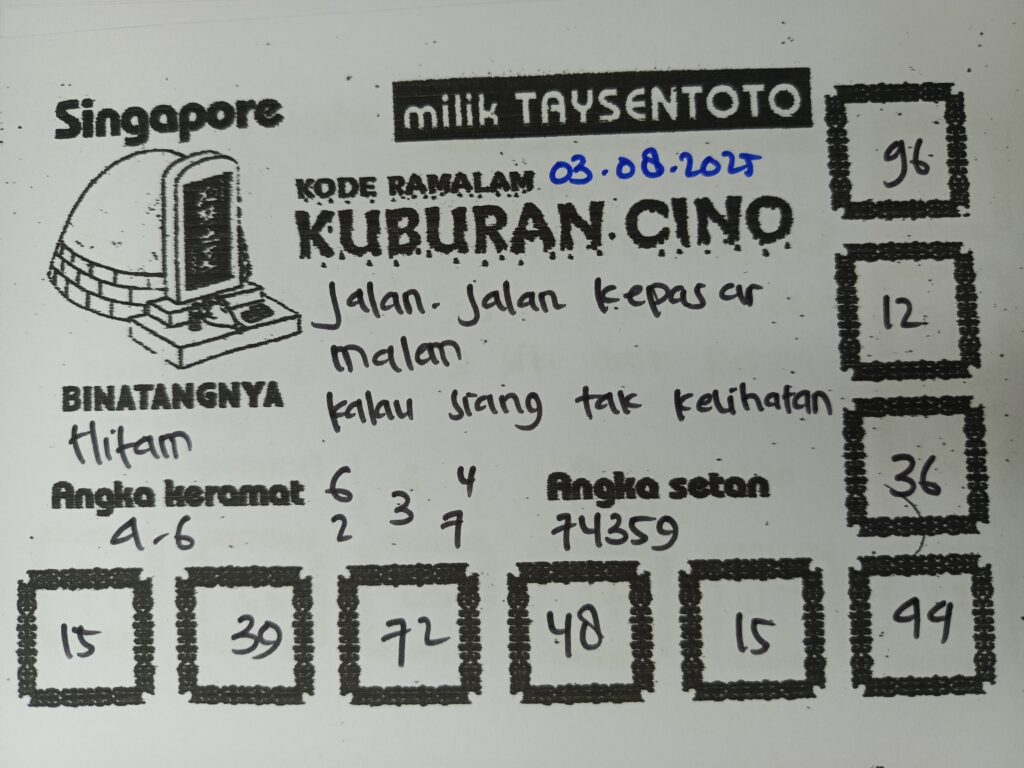 Singapore
milik TAYSENTOTO
KODE RAMALAM 03.08.2025
KUBURAN CINO
Jalan. Jalan kepasar
malan
kalau srang tak kelihatan
BINATANGNYA
Hitam
Angka keramat
9-6
6 4
3
2 7
Angka setan
74359
96
12
36
15 39 72 48 15 99